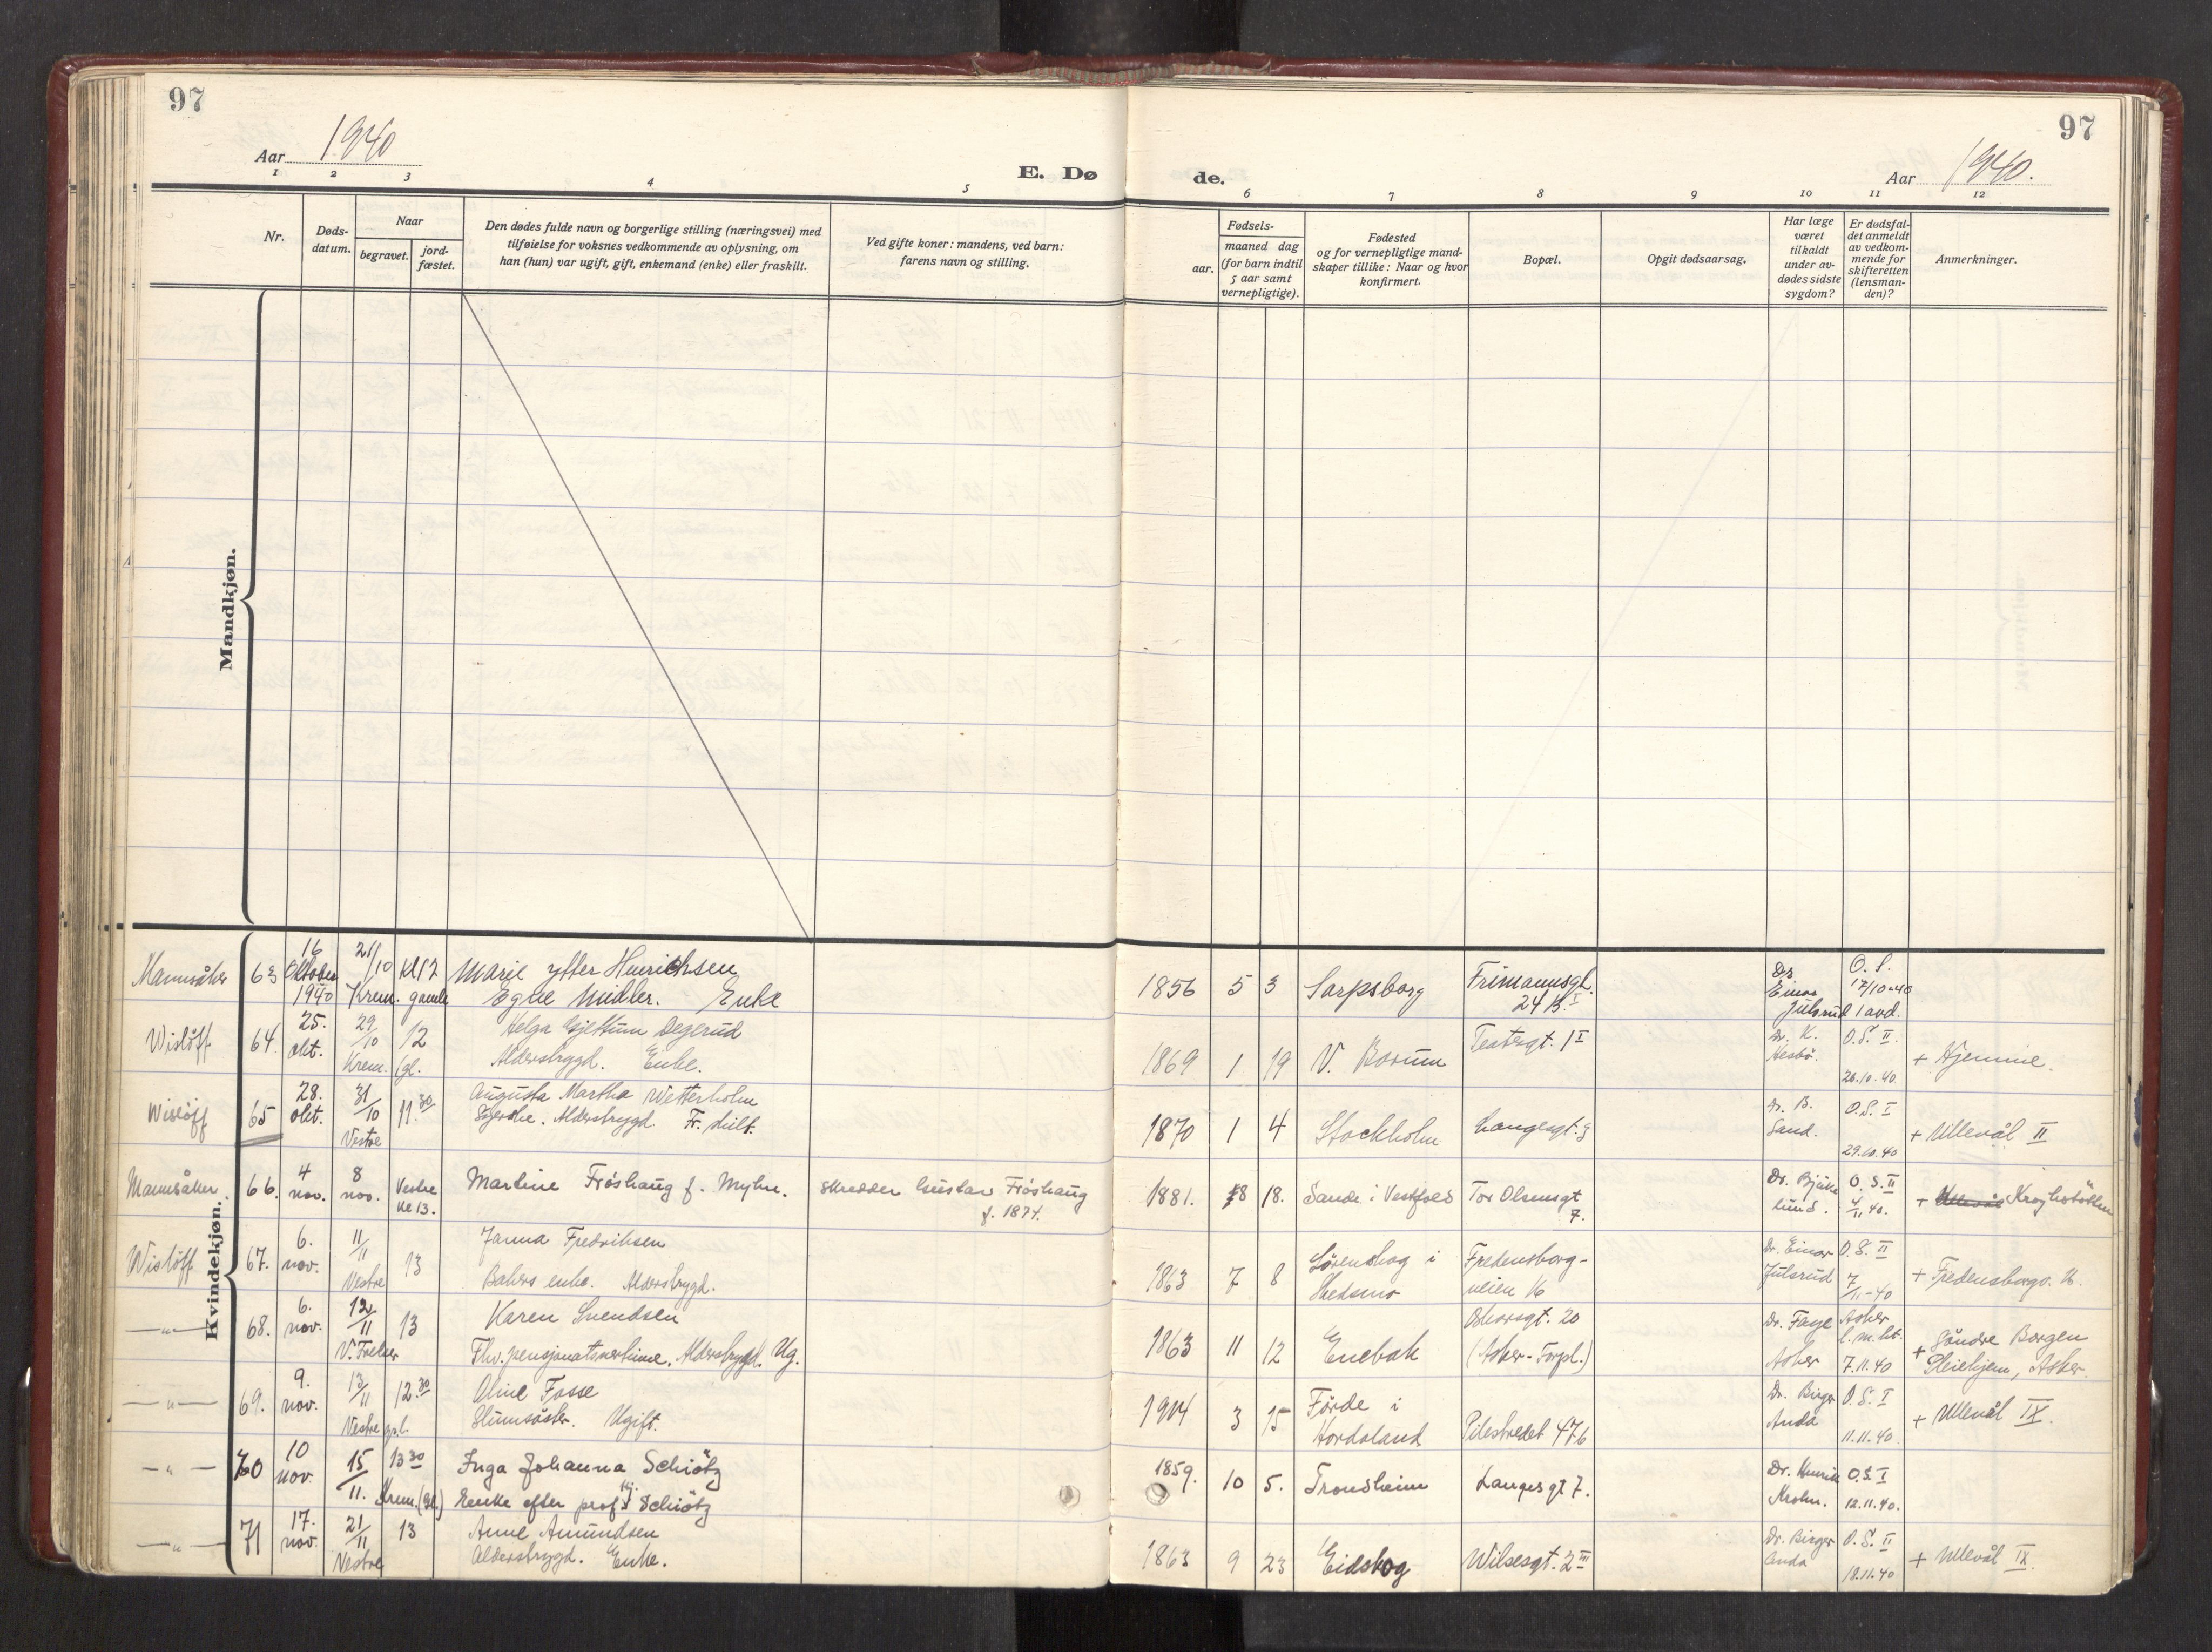 97
97
Aar 1940
E. Dø
de.
Aar 1940.
1 2 3 4 5 6 7 8 9 10 11 12
Nr.
Døds-
datum.
Naar
begravet.
jord-
fæstet.
Den dødes fulde navn og borgerlige stilling (næringsvei) med
tilføielse for voksnes vedkommende av oplysning, om
han (hun) var ugift, gift, enkemand (enke) eller fraskilt.
Ved gifte koner: mandens, ved barn:
farens navn og stilling.
Fødsels-
aar.
maaned dag
(for barn indtil
5 aar samt
vernepligtige).
Fødested
og for vernepligtige mand-
skaper tillike: Naar og hvor
konfirmert.
Bopæl.
Opgit dødsaarsag.
Har læge
været
tilkaldt
under av-
dødes sidste
sygdom?
Er dødsfal-
det anmeldt
av vedkom-
mende for
skifteretten
(lensman-
den)?
Anmerkninger.
Mandkjøn.
Kvindekjøn.
Mannsåker 63 16 Oktober 1940 21/10 Krem. gamle kl 12
Marie Hinrichsen
Egne midler. Enke
1856 5 3 Sarpsborg Frimannsgt. 24 B. I Dr. Einar Julsrud O.S. 17/10-40 1 avd.
Wisløff 64. 25. okt. 29/10 Krem. (gl. 12
Helga Gjettum Degerud
Alderstrygd. Enke.
1869 1 19 V. Bærum Teatergt. 1 I Dr. K. O.S. II 26.10.40. + Hjemme.
Wisløff 65 28. okt. 31/10 Vestre 11.30
Augusta Martha Wetterholm
Alderstrygd. Fr. skilt.
1870 1 4 Stockholm Langesgt. Dr. B. Sand. O.S. I 29.10.40 + Ullevål II
Mannsåker. 66. 4 nov. 8 nov. Vestre kl 13.
Martine Frøshaug f. Myhre. Skredder Gustav Frøshaug
f. 1874.
1881. 8 18. Sande i Vestfold Tor Olsensgt 7. Dr. Bjerkelund. O.S. II 4/11 40. +
Wisløff 67. 6. nov. 11/11 Vestre 13
Janna Fredriksen
Bakers enke. Alderstrygd.
1863 7 8 Sørenskog i Skedsmo Fredensborgveien 16 Dr. Einar Julsrud O.S. II 7/11-40 + Fredensborgv. 16.
—"— 68. 6. nov. 12/11 V. Frelser 13
Karen Svendsen
Fhv. pensjonatsvertinne. Alderstrygd. Ug.
1863 11 12 Enebak Oscarsgt. 20 (Asker-Torpl.) Dr. Faye Asker Asker l.m.kt. 7.11.40 + Søndre Borgen
Pleiehjem, Asker.
—"— 69. 9. nov. 13/11 Vestre gr.l. 12.30
Oline Fosse
Slumsøster. Ugift.
1904 3 15 Førde i Hordaland Pilestredet 47b Dr. Birger Anda O.S. I 11.11.40 + Ullevål IX.
—"— 70 10 nov. 15/11. Krem. (Gl.) 13 30
Inga Johanna Schiøtz
Enke efter prof. Hj. Schiøtz
1859. 10 5. Trondheim Langesgt 7. Dr. Henrik Krohn. O.S. I 12.11.40.
—"— 71 17. nov. 21/11 Vestre 13
Anne Amundsen
Alderstrygd. Enke.
1863 9 23 Eidskog Wilsesgt. 2 III Dr. Birger Anda O.S. II 18.11.40 + Ullevål IX.